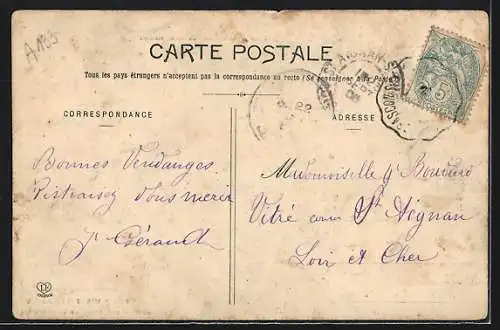 CARTE POSTALE
Tous les pays étrangers n'acceptent pas la correspondance au recto (Se renseigner à la Poste)
CORRESPONDANCE
ADRESSE
Bonnes Vendanges
J. Gérault
Mademoiselle J. Bouvard
Vitré St Aignan
Loir et Cher